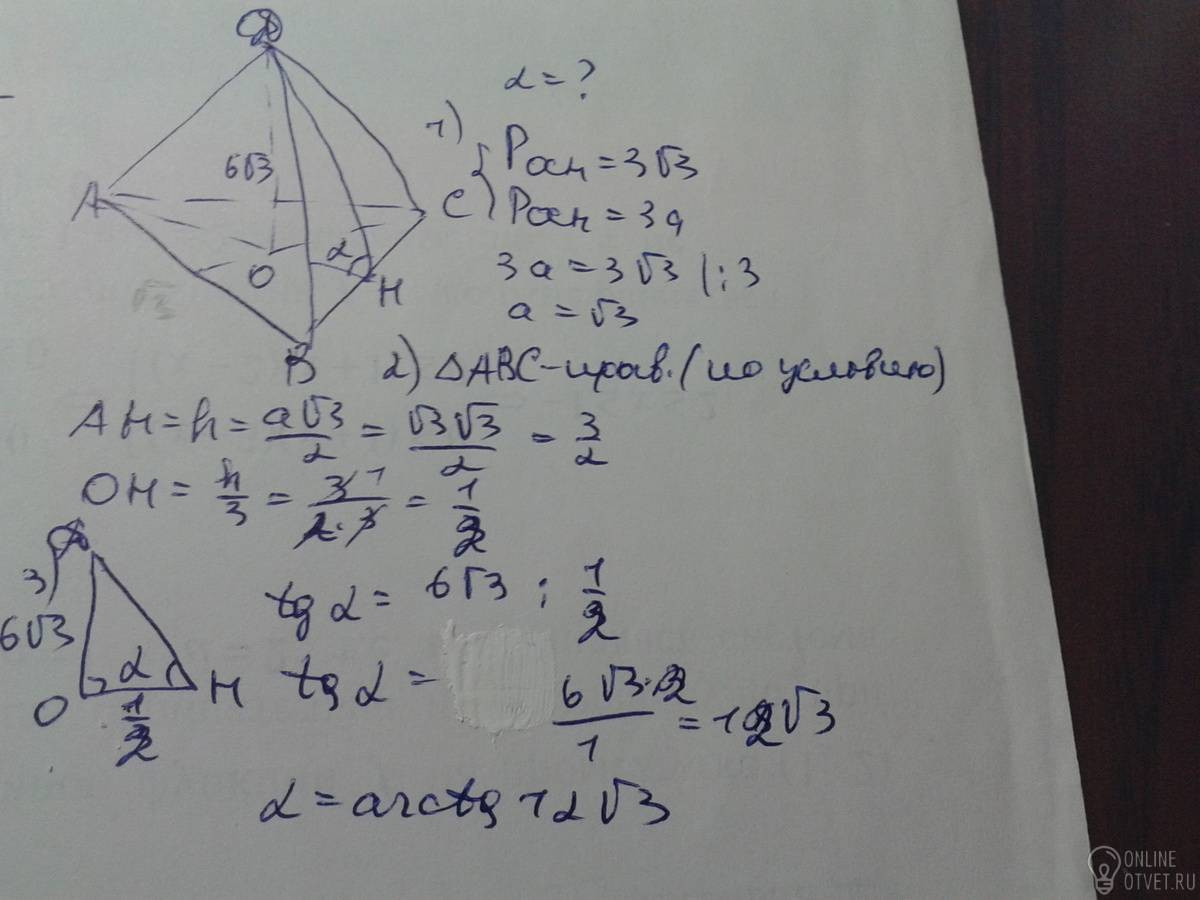 D
6√3
A
C
O
α
H
B
α = ?
1) { Pосн = 3√3
Pосн = 3a
3a = 3√3 | : 3
a = √3
2) △ABC - прав. (по условию)
AH = h = a√3/2 = √3√3/2 = 3/2
OH = h/3 = 3 1/2·3 = 1/2
3)
6√3
α
O
H
1/2
tg α = 6√3 : 1/2
tg α = 6√3·2/1 = 12√3
α = arctg 12√3
ONLINE
OTVET.RU